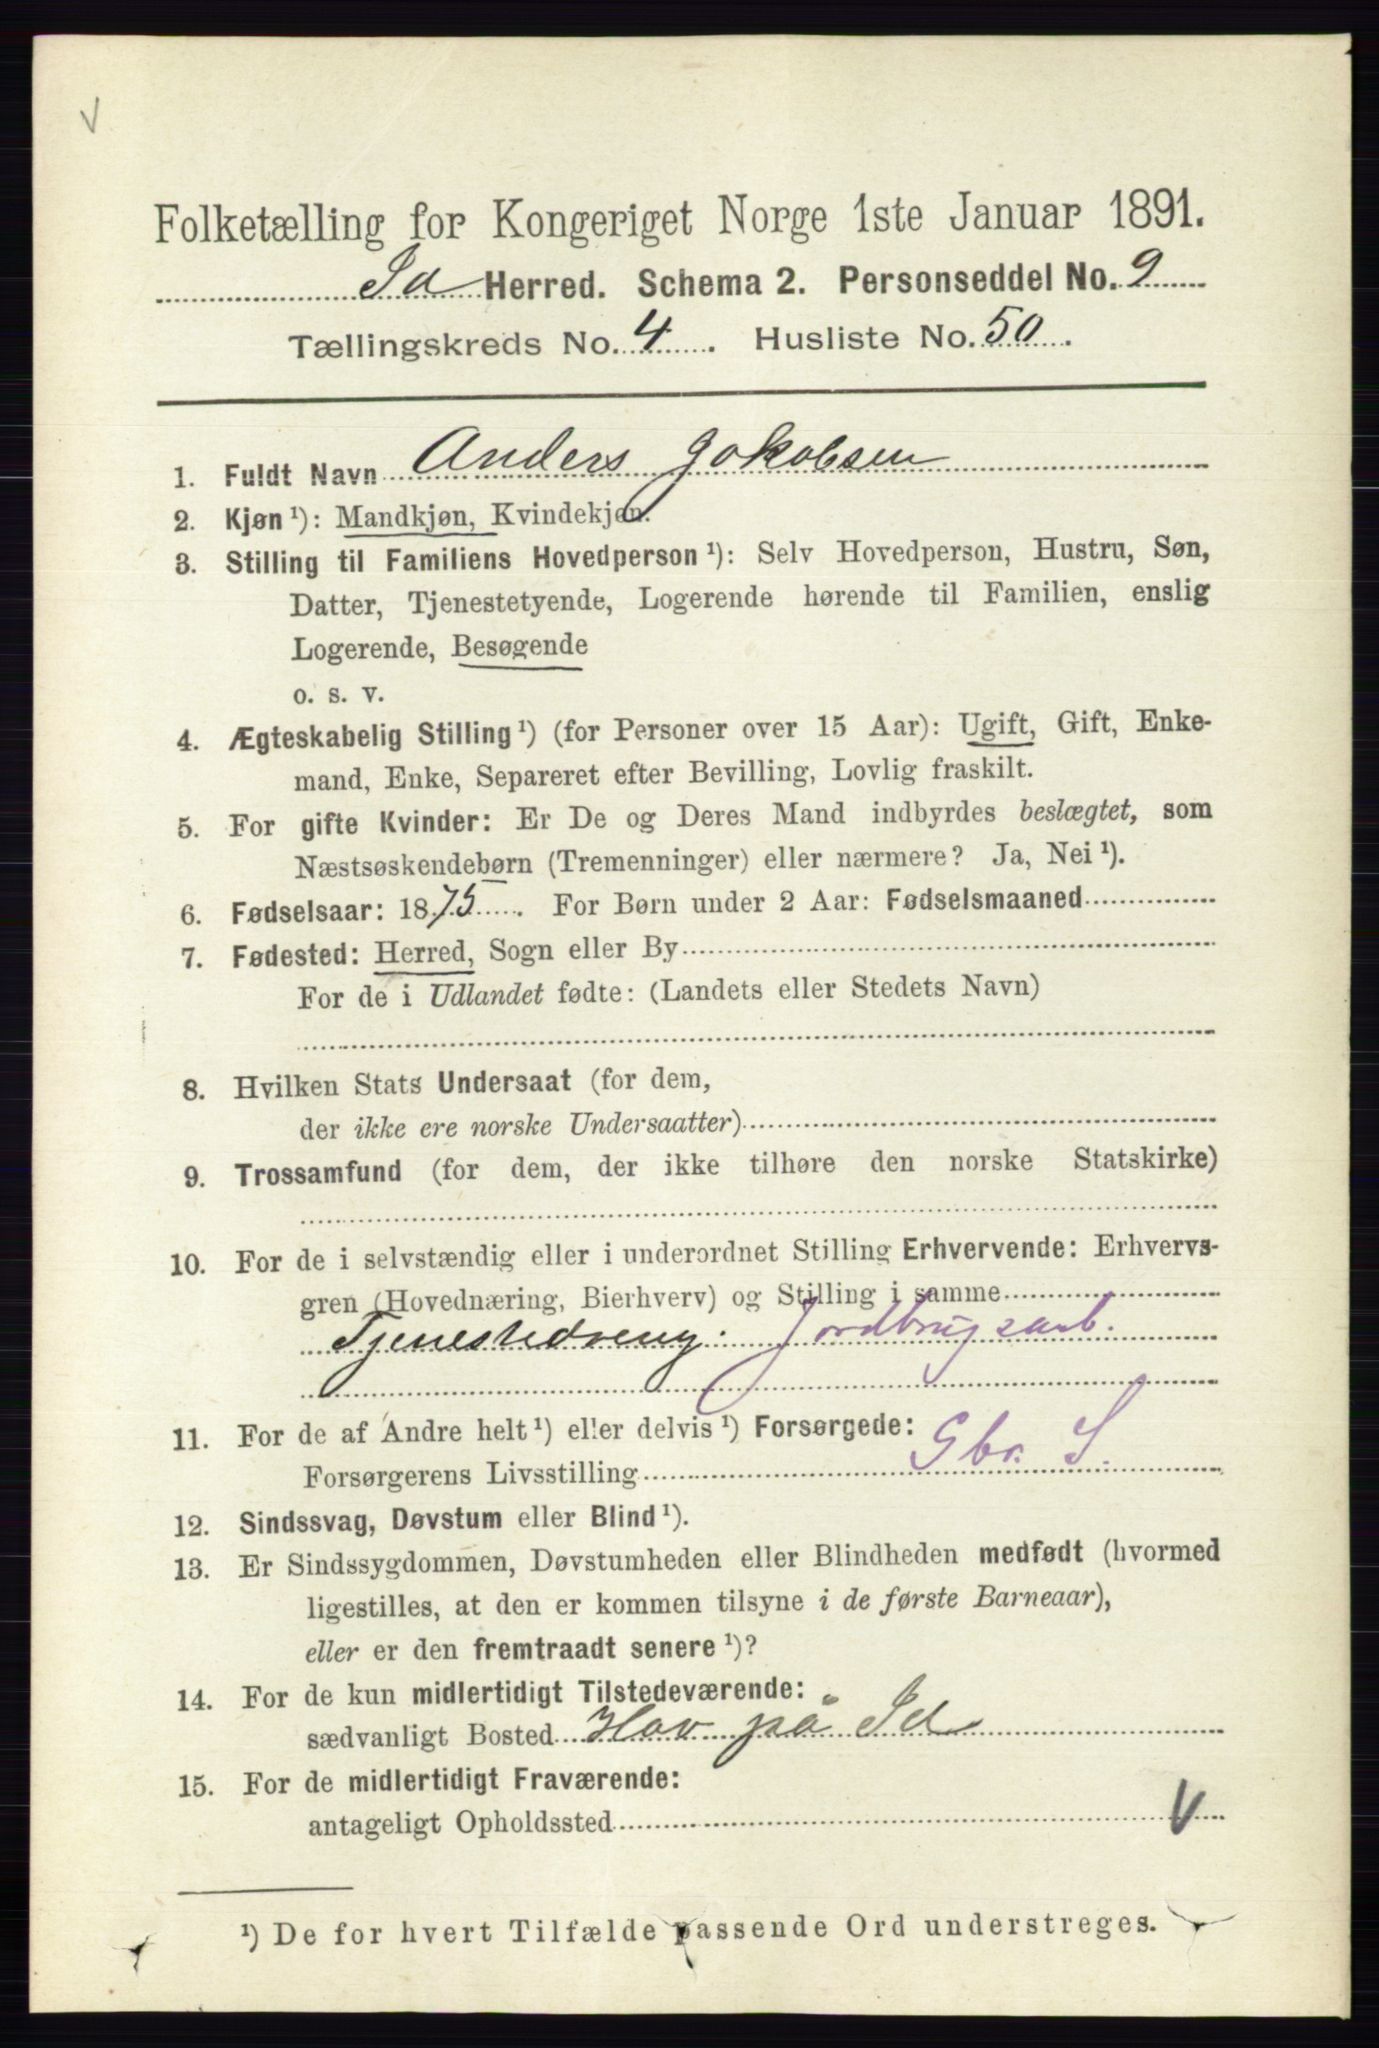 V
Folketælling for Kongeriget Norge 1ste Januar 1891.
Id Herred. Schema 2. Personseddel No. 9
Tællingskreds No. 4. Husliste No. 50.
1. Fuldt Navn Anders Jakobsen
2. Kjøn ¹): Mandkjøn, Kvindekjøn.
3. Stilling til Familiens Hovedperson ¹): Selv Hovedperson, Hustru, Søn,
Datter, Tjenestetyende, Logerende hørende til Familien, enslig
Logerende, Besøgende
o. s. v.
4. Ægteskabelig Stilling ¹) (for Personer over 15 Aar): Ugift, Gift, Enke-
mand, Enke, Separeret efter Bevilling, Lovlig fraskilt.
5. For gifte Kvinder: Er De og Deres Mand indbyrdes beslægtet, som
Næstsøskendebørn (Tremenninger) eller nærmere? Ja, Nei ¹).
6. Fødselsaar: 1875. For Børn under 2 Aar: Fødselsmaaned
7. Fødested: Herred, Sogn eller By
For de i Udlandet fødte: (Landets eller Stedets Navn)
8. Hvilken Stats Undersaat (for dem,
der ikke ere norske Undersaatter)
9. Trossamfund (for dem, der ikke tilhøre den norske Statskirke)
10. For de i selvstændig eller i underordnet Stilling Erhvervende: Erhvervs-
gren (Hovednæring, Bierhverv) og Stilling i samme
Tjenestedreng: Jordbrugsarb.
11. For de af Andre helt ¹) eller delvis ¹) Forsørgede:
Forsørgerens Livsstilling Gbr. S.
12. Sindssvag, Døvstum eller Blind ¹).
13. Er Sindssygdommen, Døvstumheden eller Blindheden medfødt (hvormed
ligestilles, at den er kommen tilsyne i de første Barneaar),
eller er den fremtraadt senere ¹)?
14. For de kun midlertidigt Tilstedeværende:
sædvanligt Bosted Hov på Id
15. For de midlertidigt Fraværende:
antageligt Opholdssted V
¹) De for hvert Tilfælde passende Ord understreges.